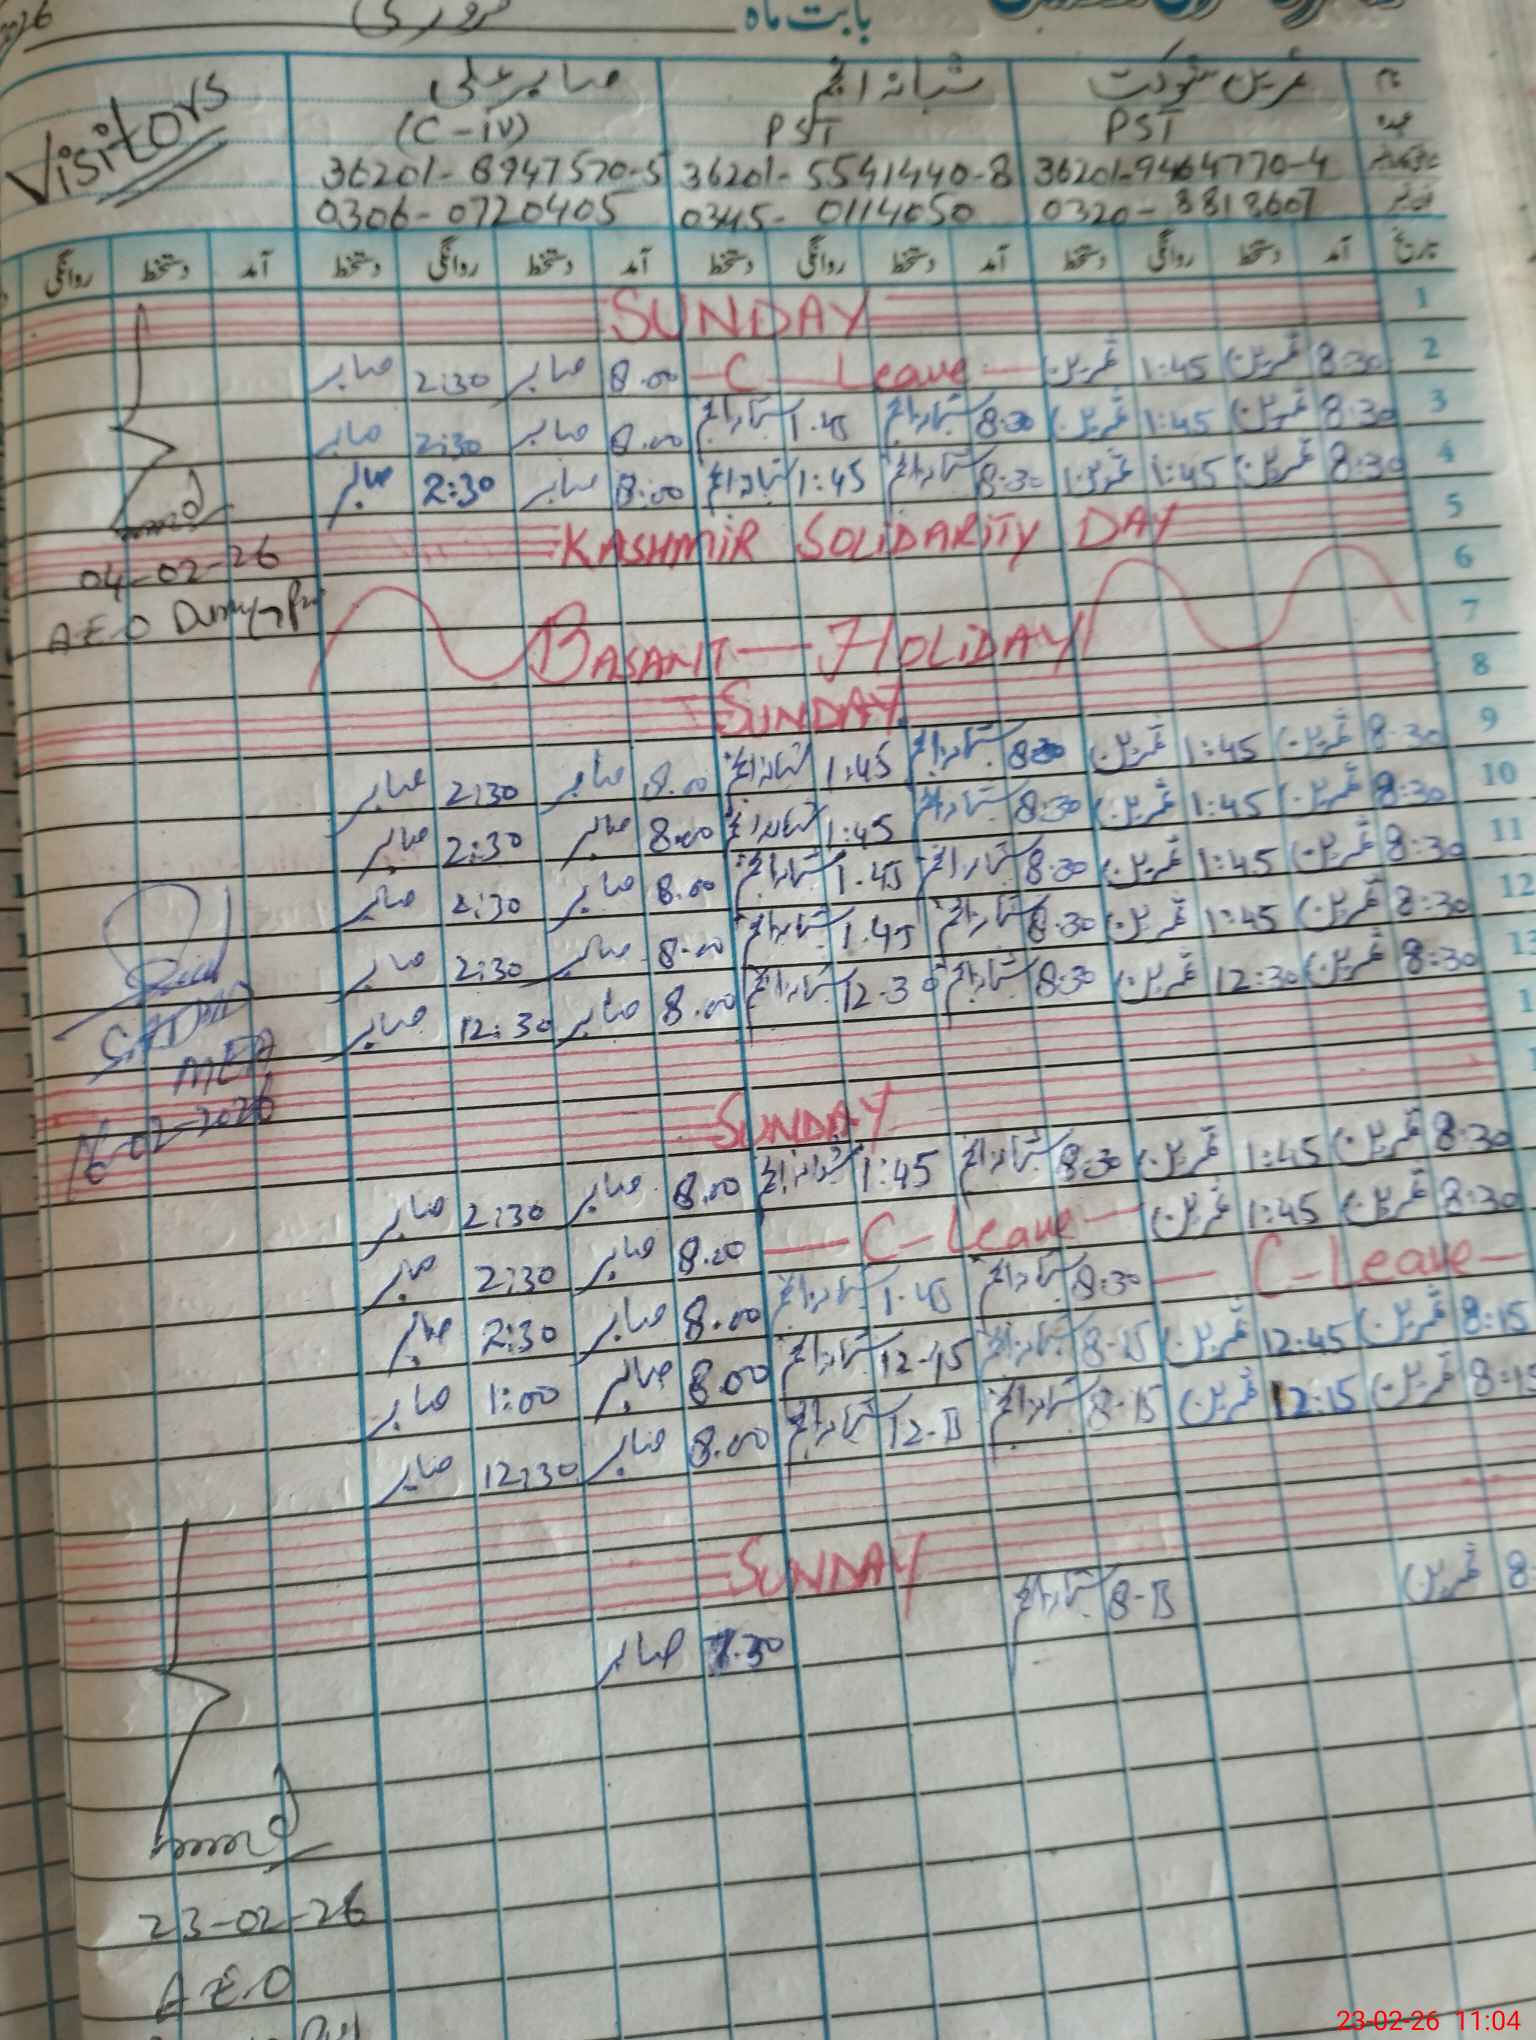 بابت ماہ فروری
نام ثمرین شوکت شبانہ انجم صابر علی Visitors
عہدہ PST PST (C-iv)
36201-9464770-4 36201-5541440-8 36201-8947570-5
فون نمبر 0320-8818607 0345-0114050 0306-0720405
تاریخ آمد دستخط روانگی دستخط آمد دستخط روانگی دستخط آمد دستخط روانگی دستخط آمد دستخط روانگی
1 SUNDAY
2 8:30 ثمرین 1:45 ثمرین — C — Leave — 8.00 صابر 2:30 صابر
3 8:30 ثمرین 1:45 ثمرین 8:30 شبانہ انجم 1.45 شبانہ انجم 8.00 صابر 2:30 صابر
4 8:30 ثمرین 1:45 ثمرین 8:30 شبانہ انجم 1:45 شبانہ انجم 8:00 صابر 2:30 صابر
5 KASHMIR SOLIDARITY DAY
04-02-26
6
A.E.O
7 BASANT — HOLIDAY
8 SUNDAY
9 8:30 ثمرین 1:45 ثمرین 8:30 شبانہ انجم 1:45 شبانہ انجم 8.00 صابر 2:30 صابر
10 8:30 ثمرین 1:45 ثمرین 8:30 شبانہ انجم 1:45 شبانہ انجم 8.00 صابر 2:30 صابر
11 8:30 ثمرین 1:45 ثمرین 8:30 شبانہ انجم 1.45 شبانہ انجم 8.00 صابر 2:30 صابر
12 8:30 ثمرین 1:45 ثمرین 8.30 شبانہ انجم 1.45 شبانہ انجم 8.00 صابر 2:30 صابر
13 8:30 ثمرین 12:30 ثمرین 8:30 شبانہ انجم 12.30 شبانہ انجم 8.00 صابر 12:30 صابر
MEA
SUNDAY
16-02-2026
8:30 ثمرین 1:45 ثمرین 8:30 شبانہ انجم 1:45 شبانہ انجم 8.00 صابر 2:30 صابر
8:30 ثمرین 1:45 ثمرین — C — Leave — 8.00 صابر 2:30 صابر
— C — Leave — 8:30 شبانہ انجم 1.45 شبانہ انجم 8.00 صابر 2:30 صابر
8:15 ثمرین 12:45 ثمرین 8-15 شبانہ انجم 12-45 شبانہ انجم 8.00 صابر 1:00 صابر
8:15 ثمرین 12:15 ثمرین 8-15 شبانہ انجم 12-15 شبانہ انجم 8.00 صابر 12:30 صابر
SUNDAY
8: ثمرین 8-15 شبانہ انجم 7.30 صابر
23-02-26
A.E.O
23-02-26 11:04